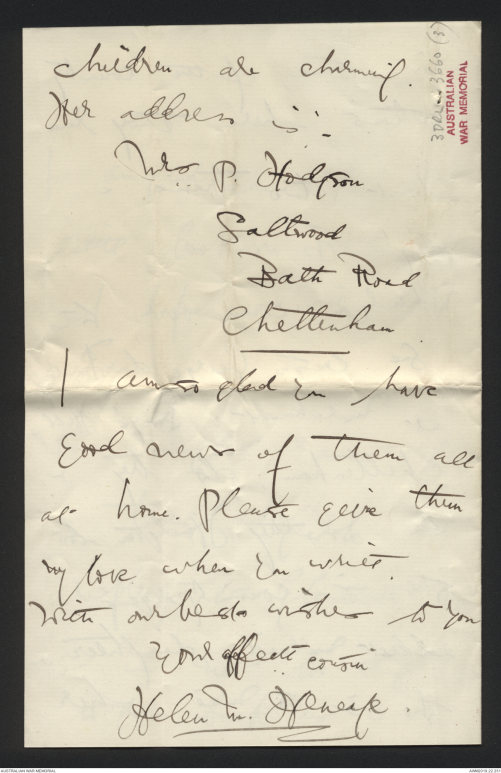 children are charming.
Her address is:-
Mrs P. Hodgson
Saltwood
Bath Road
Cheltenham
I am so glad you have
good news of them all
at home. Please give them
my love when you write.
With our best wishes to you
Your affecte cousin
Helen M. Heneage.
3DRL 3660 (3)
AUSTRALIAN
WAR MEMORIAL
AUSTRALIAN WAR MEMORIAL